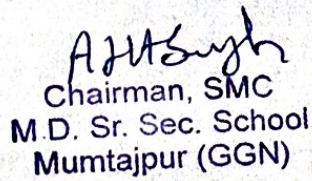 Chairman, SMC
M.D. Sr. Sec. School
Mumtajpur (GGN)